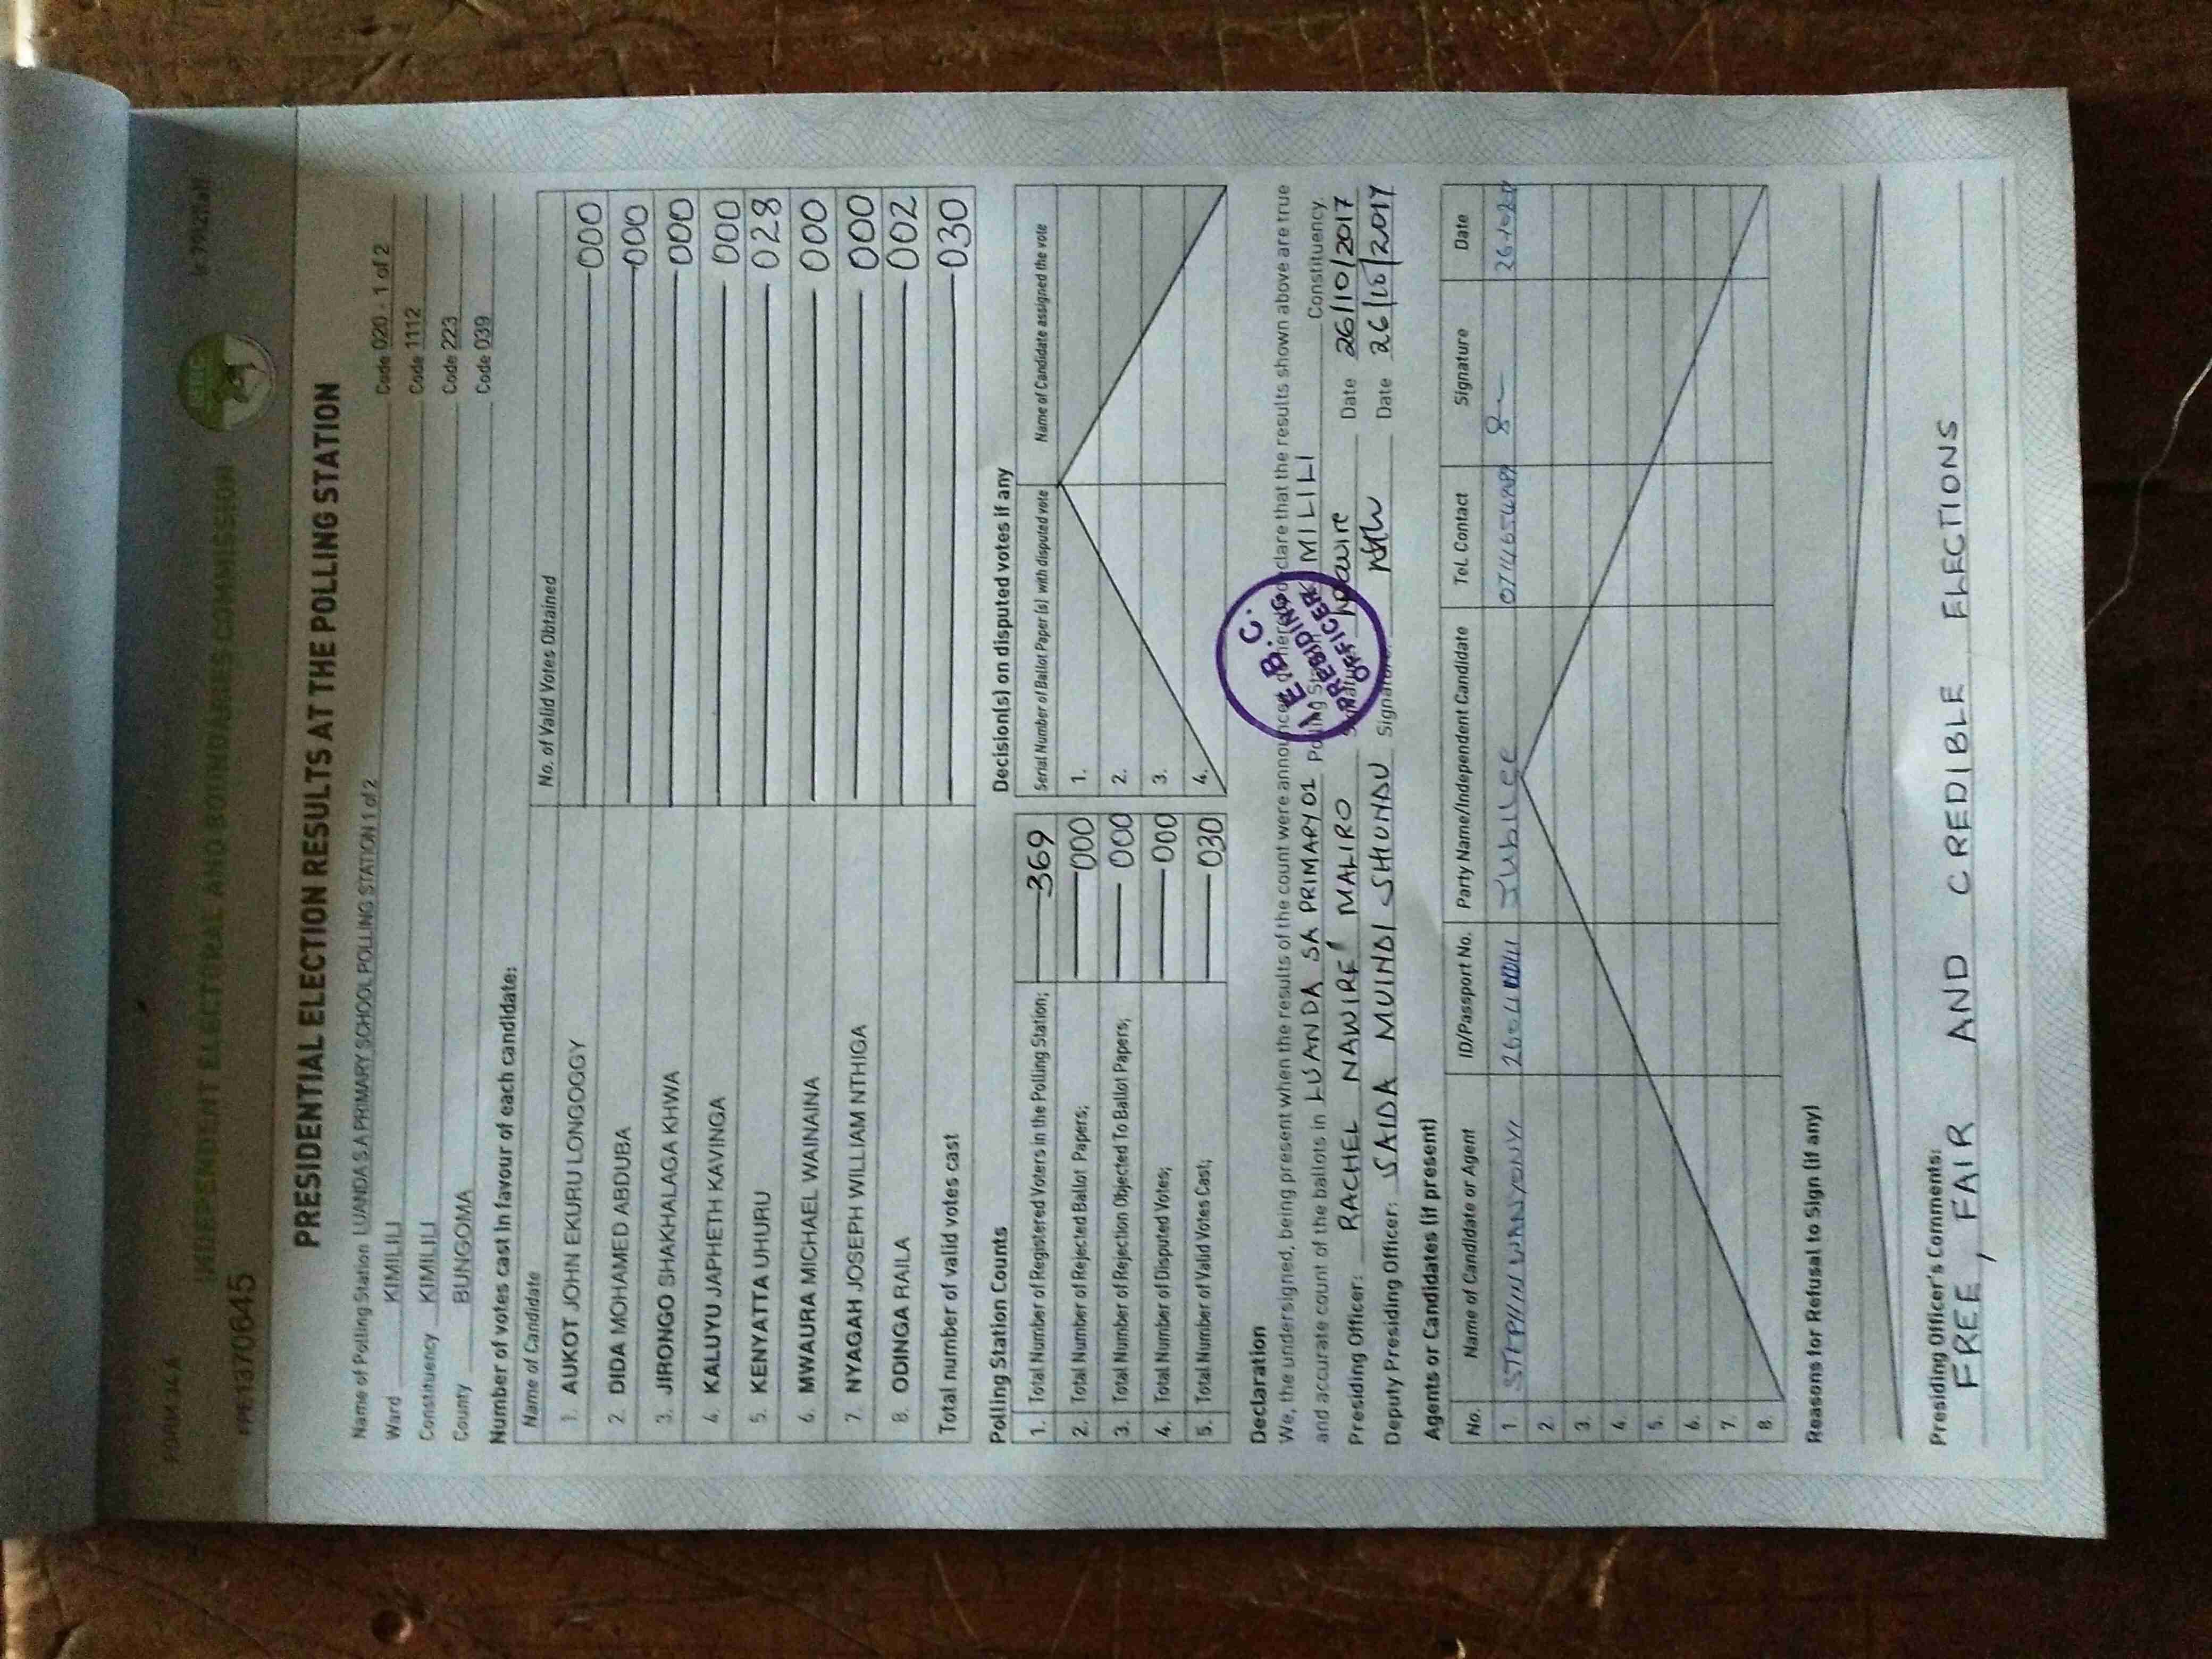 FORM 34A
INDEPENDENT ELECTORAL AND BOUNDARIES COMMISSION
IEBC
PRE1370645
PRESIDENTIAL ELECTION RESULTS AT THE POLLING STATION
Name of Polling Station LUANDA S.A PRIMARY SCHOOL POLLING STATION 1 of 2 Code 020 - 1 of 2
Ward KIMILILI Code 1112
Constituency KIMILILI Code 223
County BUNGOMA Code 039
Number of votes cast in favour of each candidate:
Name of Candidate No. of Valid Votes Obtained
1. AUKOT JOHN EKURU LONGOGGY 000
2. DIDA MOHAMED ABDUBA 000
3. JIRONGO SHAKHALAGA KHWA 000
4. KALUYU JAPHETH KAVINGA 000
5. KENYATTA UHURU 028
6. MWAURA MICHAEL WAINAINA 000
7. NYAGAH JOSEPH WILLIAM NTHIGA 000
8. ODINGA RAILA 002
Total number of valid votes cast 030
Polling Station Counts
1. Total Number of Registered Voters in the Polling Station; 369
2. Total Number of Rejected Ballot Papers; 000
3. Total Number of Rejection Objected To Ballot Papers; 000
4. Total Number of Disputed Votes; 000
5. Total Number of Valid Votes Cast; 030
Decision(s) on disputed votes if any
Serial Number of Ballot Paper (s) with disputed vote Name of Candidate assigned the vote
1.
2.
3.
4.
Declaration
We, the undersigned, being present when the results of the count were announced, hereby declare that the results shown above are true
and accurate count of the ballots in LUANDA SA PRIMARY 01 Polling Station MILILI Constituency.
Presiding Officer: RACHEL NAWIRE MALIRO Signature Nawire Date 26/10/2017
Deputy Presiding Officer: SAIDA MUINDI SHUNDU Signature: Date 26/10/2017
I.E.B.C.
PRESIDING
OFFICER
Agents or Candidates (if present)
No. Name of Candidate or Agent ID/Passport No. Party Name/Independent Candidate Tel. Contact Signature Date
1. WANYONYI Jubilee
2.
3.
4.
5.
6.
7.
8.
Reasons for Refusal to Sign (if any)
Presiding Officer's Comments:
FREE, FAIR AND CREDIBLE ELECTIONS